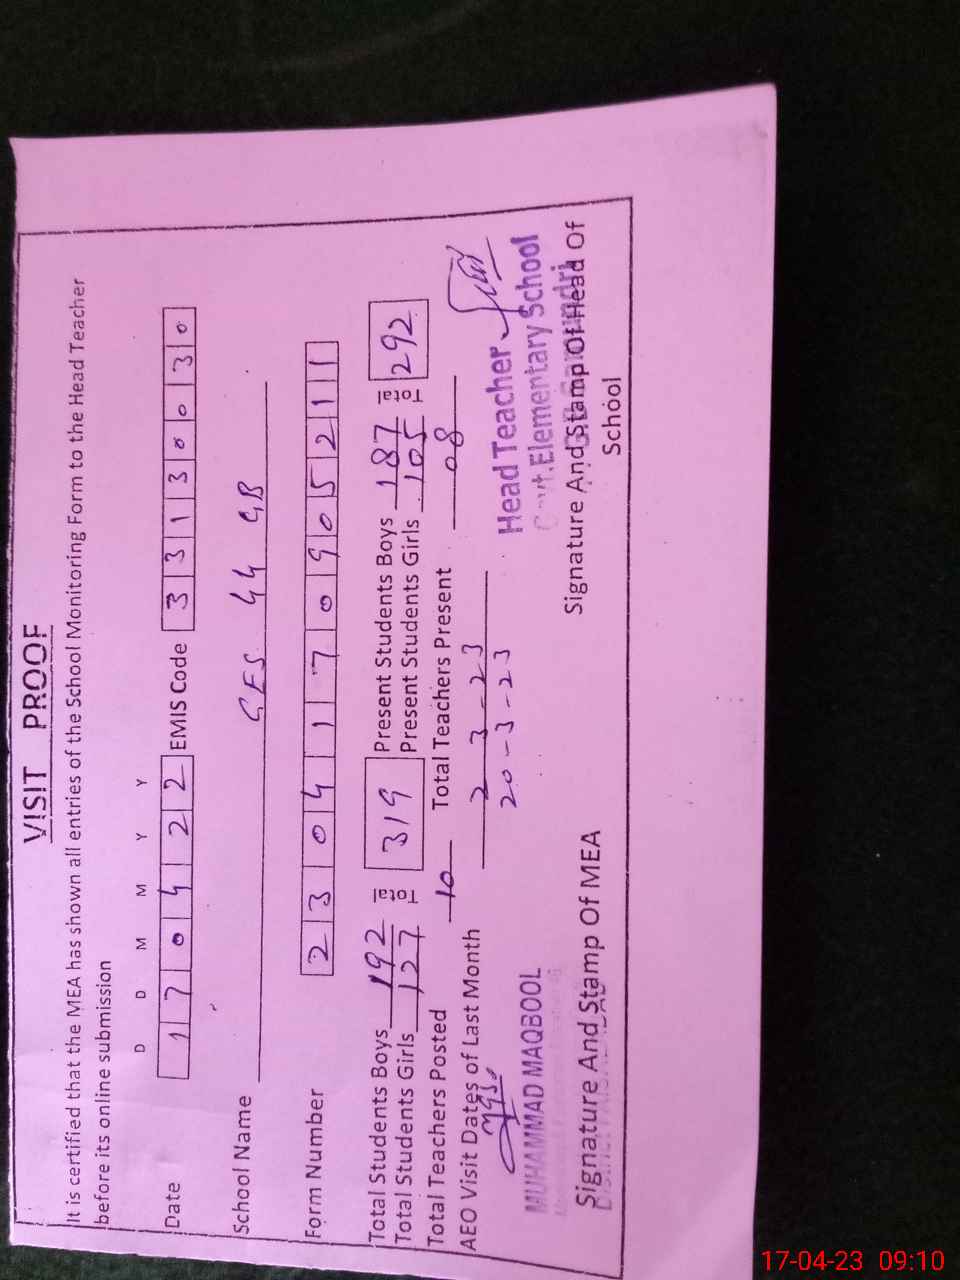 VISIT PROOF
It is certified that the MEA has shown all entries of the School Monitoring Form to the Head Teacher
before its online submission
D D M M Y Y
Date 170422 EMIS Code 33130030
School Name GES 44 GB
Form Number 2304170905211
Total Students Boys 192 Total 319 Present Students Boys 187 Total 292
Total Students Girls 127 Present Students Girls 105
Total Teachers Posted 10 Total Teachers Present 08
AEO Visit Dates of Last Month 2-3-23
20-3-23
MUHAMMAD MAQBOOL
Head Teacher
Govt. Elementary School
Signature And Stamp Of MEA
Signature And Stamp Of Head Of
School
17-04-23 09:10